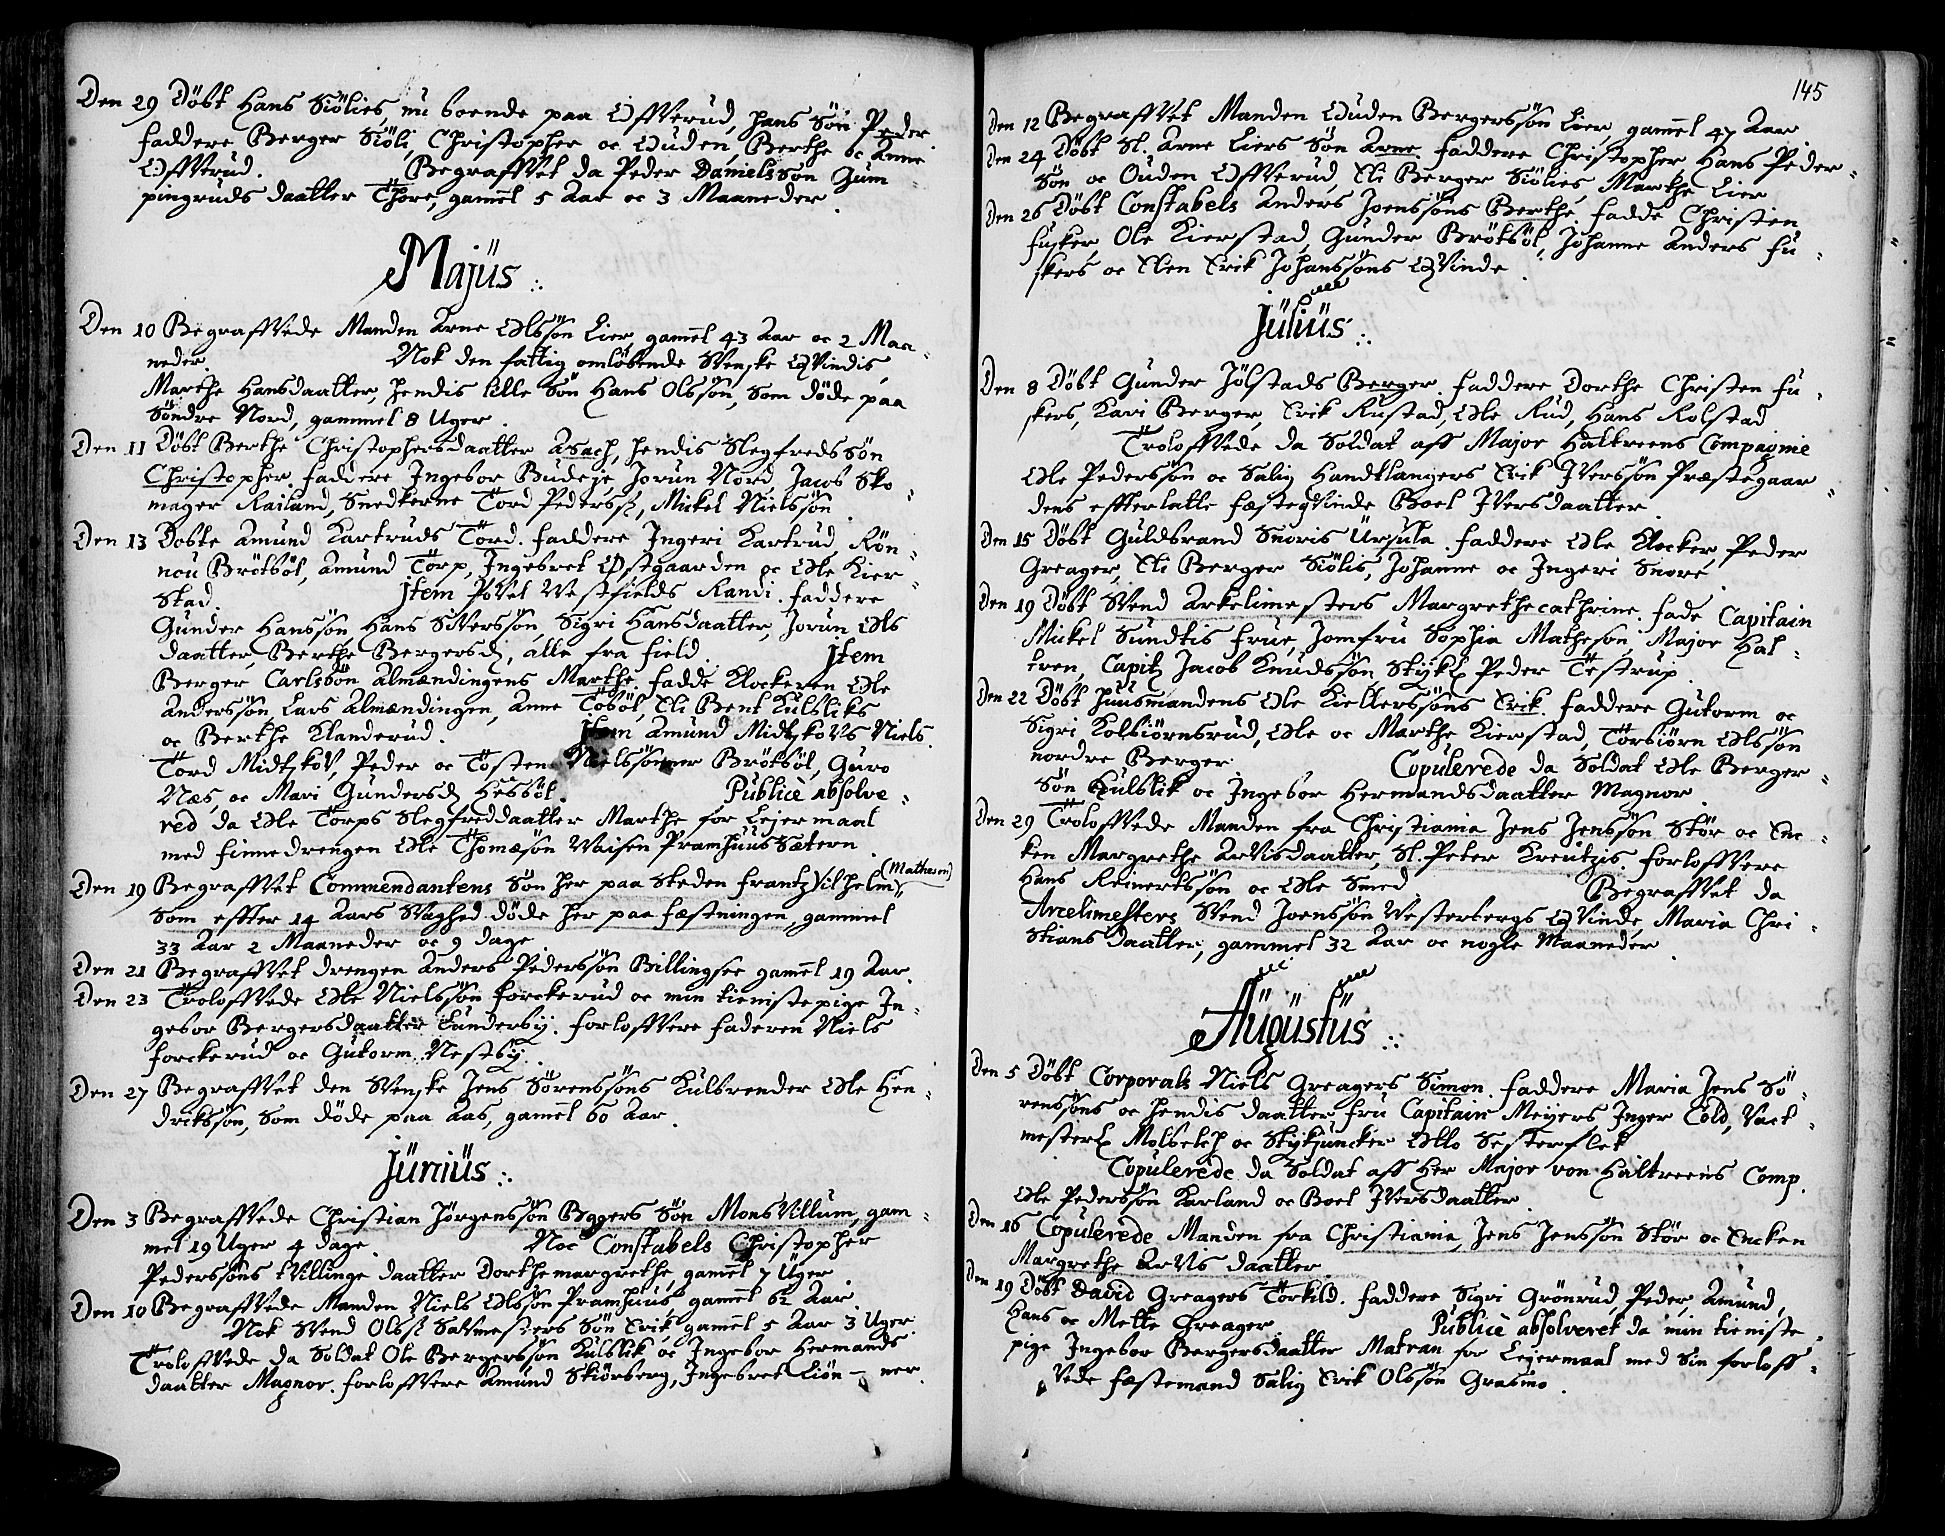 Den 29 Döbt Hans Siölies, nu boende paa Offverud, hans Sön Peder
faddere Berger Siöli, Christopher oc Ouden, Berthe oc Anne
Offverud. Begraffvet da Peder Danielssøn Gum
pingruds daatter Thore, gamel 5 Aar oc 3 Maaneder.
Majüs
Den 10 Begraffvede Manden Arne Olssön Lier, gamel 43 Aar oc 2 Maa-
neder. Nok den fattig omlöbende Svenske Qvindis
Marthe Hansdaatter, hendis lille Sön Hans Olssön, som döde paa
Söndre Nord, gammel 8 Uger.
Den 11 Döbt Berthe Christophersdaatter Asach, hendis Slegfredssön
Christopher. faddere Ingebor Budeje, Jorun Nord, Jacob Sko-
mager Railand, Snedkerne Tord Peders, Mickel Nielssön
Den 13 Döbte Amund Kartruds Tord. faddere Ingeri Kartrud, Rön-
nou Brötböl, Amund Torp, Ingebret Östgaarden oc Ole Kier-
stad. Item Povel Vestfields Randi. faddere
Gunder Hanssön, Hans Siverssön, Sigri Hansdaatter, Jorun Ols
daatter, Berthe Bergersd, alle fra field Item
Berger Carlssön Almendingens Marthe, fadde Klockeren Ole
Anderssön, Lars Almendingen, Anne Töböl, Eli Bent Kulbliks
oc Berthe Klanderud. Item Amund Midtskovs Niels.
Tord Midtskov, Peder oc Tosten Nielssönner Brötböl, Guro
Næs, oc Mari Gundersd Hesböl. Publicè absolve-
red da Ole Torps Slegfreddaatter Marthe for Lejermaal
med finnedrengen Ole Thomæsön Vaisen Pramhuus Sætern
Den 19 Begraffvet Commendantens Sön her paa Steden frantz Vilhelm, (Matheson)
som effter 14 Aars Svaghed döde her paa fæstningen, gammel
33 Aar 2 Maaneder oc 9 dage
Den 21 Begraffvet drengen Anders Pederssön Billingsee gamel 19 Aar.
Den 23 Troloffvede Ole Nielssön forckerud oc min tienistepige In-
gebor Bergersdaatter Lunderby. forloffvere faderen Niels
forckerud oc Gutorm Nestby.
Den 27 Begraffvet den Svenske Jens Sörenssöns Kulbrender Ole Hen-
drickssön, som döde paa Aas, gamel 60 Aar.
Jüniüs
Den 3 Begraffvede Christian Jörgenssön Byggers Sön Mons Villum, gam-
mel 19 Uger 4 dage. Noc Constabels Christopher
Pederssöns tvillinge daatter Dorthemargrethe, gamel 7 Uger
Den 10 Begraffvede Manden Niels Olssön Pramhuus gamel 62 Aar.
Nok Svend Ols Savmesters Sön Erik gamel 5 Aar 3 Uger.
Troloffvede da Soldat Ole Bergerssön Kulblik oc Ingebor Hermands
daatter Magnor. forloffvere Amund Skiörberg, Ingebret Liön- ner.
145
Den 12 Begraffvet Manden Ouden Bergerssön Lier, gamel 47 Aar
Den 24 Döbt Sl. Arne Liers Sön Arne. faddere Christopher Hans Peder-
Sön oc Ouden Offverud, Eli Berger Siölies, Marthe Lier
Den 26 Döbt Constabels Anders Joenssöns Berthe. fadde Christen
fusker Ole Kierstad, Gunder Brötböl, Johanne Anders fu-
skers oc Elen Erik Johanssöns Qvinde.
Jüliüs
Den 8 Döbt Gunder Jölstads Berger. faddere Dorthe Christen fu-
skers, Kari Berger, Erik Rustad, Ole Rud, Hans Rolstad
Troloffvede da Soldat aff Major Hältreens Compagnie
Ole Pederssön oc Salig Handtlangers Erik Iverssön Præstegaar-
dens effterlatte fæsteqvinde Boel Iversdaatter
Den 15 Döbt Guldbrand Snoris Ursula. faddere Ole Klocker, Peder
Greager, Eli Berger Siölis, Johanne oc Ingeri Snore
Den 19 Döbt Svend Arkelimesters Margrethecathrine. fade Capitain
Mickel Sundtis frue, Jomfru Sophia Matheson, Major Häl-
treen, Capit Jacob Knudssön Stykl Peder Testrup.
Den 22 Döbt Huusmandens Ole Kiellerssöns Erik. faddere Gutorm oc
Sigri Kolbiörnsrud, Ole oc Marthe Kierstad, Torbiörn Olssön
nordre Berger. Copulerede da Soldat Ole Berger-
sön Kulblik oc Ingebor Hermandsdaatter Magnor
Den 29 Troloffvede Manden fra Christiania Jens Jenssön Stör oc En-
ken Margrethe Arvisdaatter, Sl. Peter Kreutzis forloffvere
Hans Reinertssön oc Ole Smed. Begraffvet da
Arcelimesters Svend Joenssön Vesterbergs Qvinde, Maria Chri-
stians daatter, gammel 32 Aar oc nogle Maaneder.
Augustus
Den 5 Döbt Corporals Niels Greagers Simon. faddere Maria Jens Sö-
renssöns oc hendis daatter fru Capitain Meyers, Inger Cold, Vact-
mester Molbech oc Stykjuncker Otto Sesterflet
Copulerede da Soldat aff Her Major von Hältreens Comp.
Ole Pederssön Karland oc Boel Iversdaatter
Den 16 Copulerede Manden fra Christiania, Jens Jenssön Stör oc Encken
Margrethe Arvis daatter
Den 19 Döbt David Greagers Torkild. faddere Sigri Grönrud, Peder, Amund,
Hans oc Mette Greager. Publicè absolveret da min tieniste-
pige Ingebor Bergersdaatter Matran for Lejermaal med sin forloff-
vede fæstemand Salig Erik Olssön Grasmo.